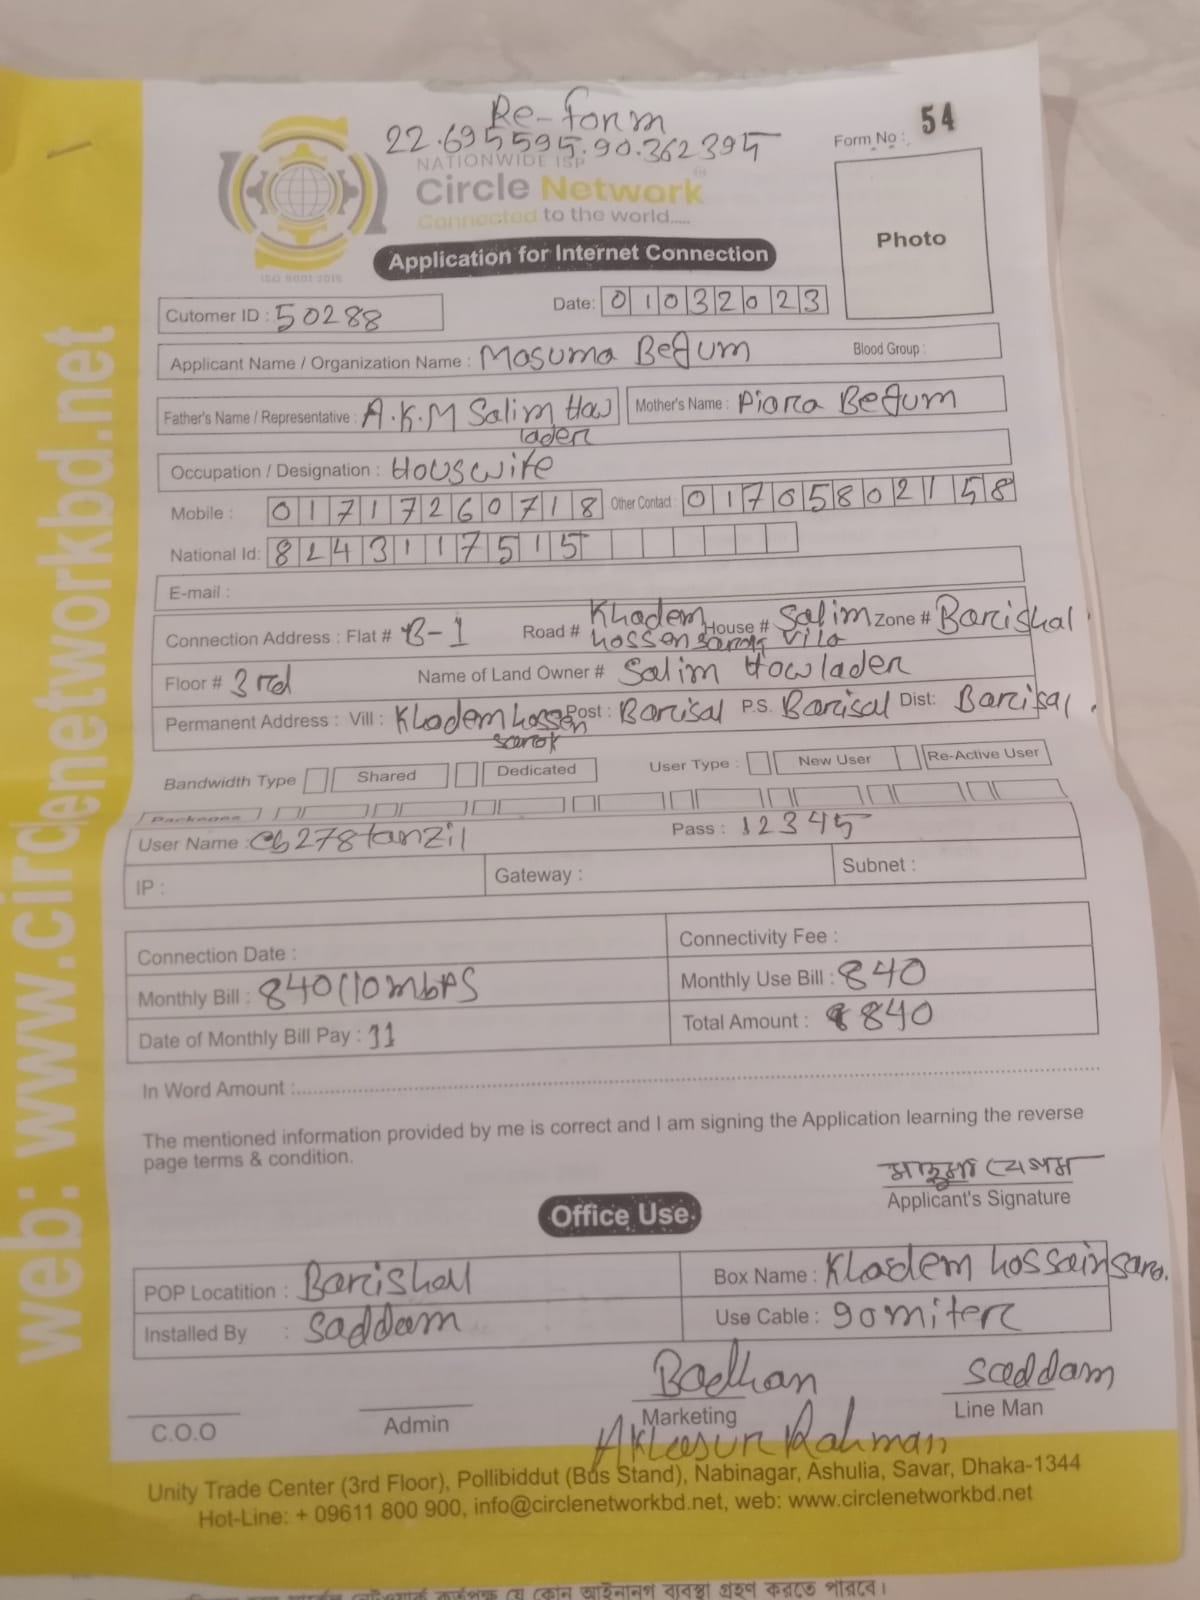 Re-form
22.695595.90.362395
Form No: 54
NATIONWIDE ISP
Circle Network
Connected to the world.....
ISO 9001:2015
Photo
Application for Internet Connection
Cutomer ID : 50288 Date: 01032023
Applicant Name / Organization Name : Masuma Begum Blood Group :
Father's Name / Representative : A.K.M Salim Howlader Mother's Name : Piara Begum
Occupation / Designation : Houswife
Mobile : 01717260718 Other Contact : 01705802158
National Id: 8243117515
E-mail :
Connection Address : Flat # B-1 Road # Khadem hossen sarok House # Salim vila Zone # Barishal
Floor # 3rd Name of Land Owner # Salim Howlader
Permanent Address : Vill : Khadem hossen sarok Post : Barisal P.S. Barisal Dist: Barisal
Bandwidth Type Shared Dedicated User Type : New User Re-Active User
Packages
User Name : cb278tanzil Pass : 12345
IP : Gateway : Subnet :
Connection Date : Connectivity Fee :
Monthly Bill : 840(10mbps Monthly Use Bill : 840
Date of Monthly Bill Pay : 11 Total Amount : 840
In Word Amount :
The mentioned information provided by me is correct and I am signing the Application learning the reverse
page terms & condition.
মাসুমা বেগম
Applicant's Signature
Office Use
POP Locatition : Barishal Box Name : Khadem hossain saro.
Installed By : Saddam Use Cable : 90 miter
Badhan saddam
C.O.O Admin Marketing Line Man
Rahman
Unity Trade Center (3rd Floor), Pollibiddut (Bus Stand), Nabinagar, Ashulia, Savar, Dhaka-1344
Hot-Line: + 09611 800 900, info@circlenetworkbd.net, web: www.circlenetworkbd.net
web: www.circlenetworkbd.net
কর্তৃপক্ষ যে কোন আইনানুগ ব্যবস্থা গ্রহণ করতে পারবে।